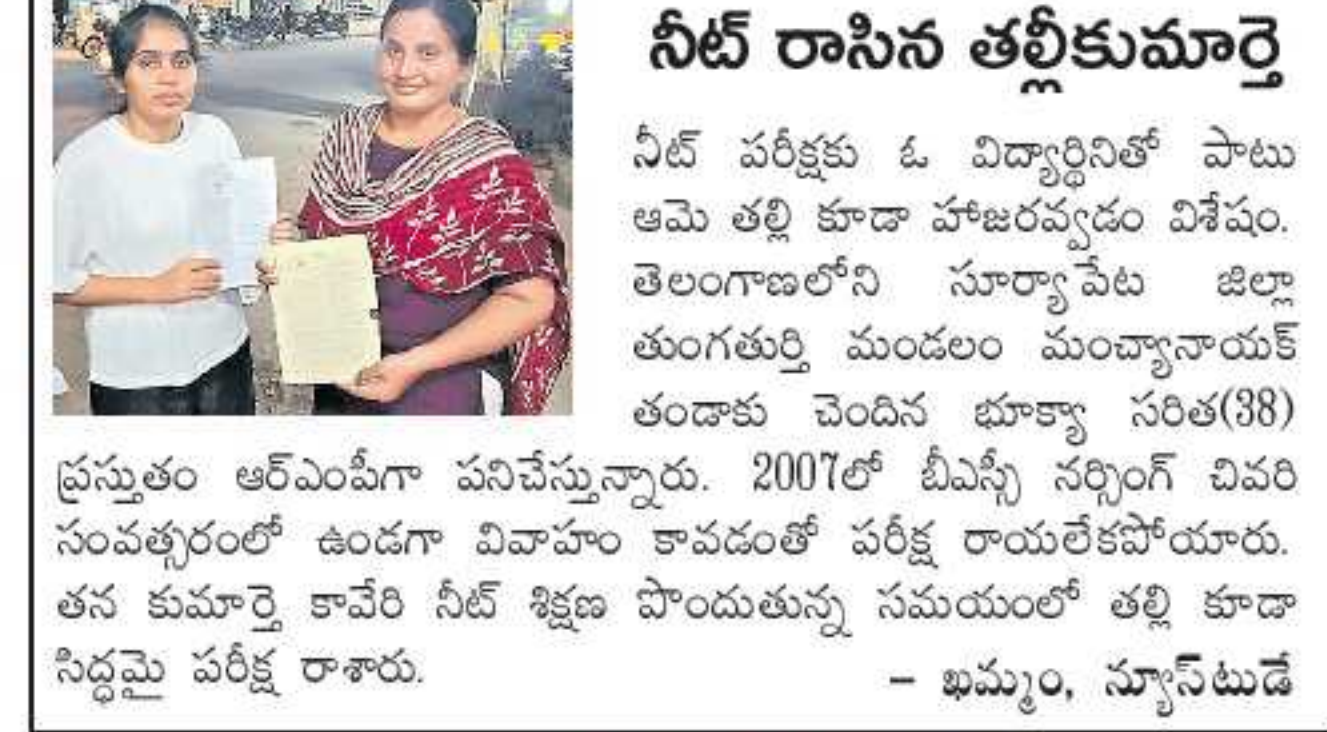 నీట్ రాసిన తల్లీకుమార్తె
నీట్ పరీక్షకు ఓ విద్యార్థినితో పాటు
ఆమె తల్లి కూడా హాజరవ్వడం విశేషం.
తెలంగాణలోని సూర్యాపేట జిల్లా
తుంగతుర్తి మండలం మంచ్యానాయక్
తండాకు చెందిన భూక్యా సరిత(38)
ప్రస్తుతం ఆర్ఎంపీగా పనిచేస్తున్నారు. 2007లో బీఎస్సీ నర్సింగ్ చివరి
సంవత్సరంలో ఉండగా వివాహం కావడంతో పరీక్ష రాయలేకపోయారు.
తన కుమార్తె కావేరి నీట్ శిక్షణ పొందుతున్న సమయంలో తల్లి కూడా
సిద్ధమై పరీక్ష రాశారు.
– ఖమ్మం, న్యూస్‌టుడే